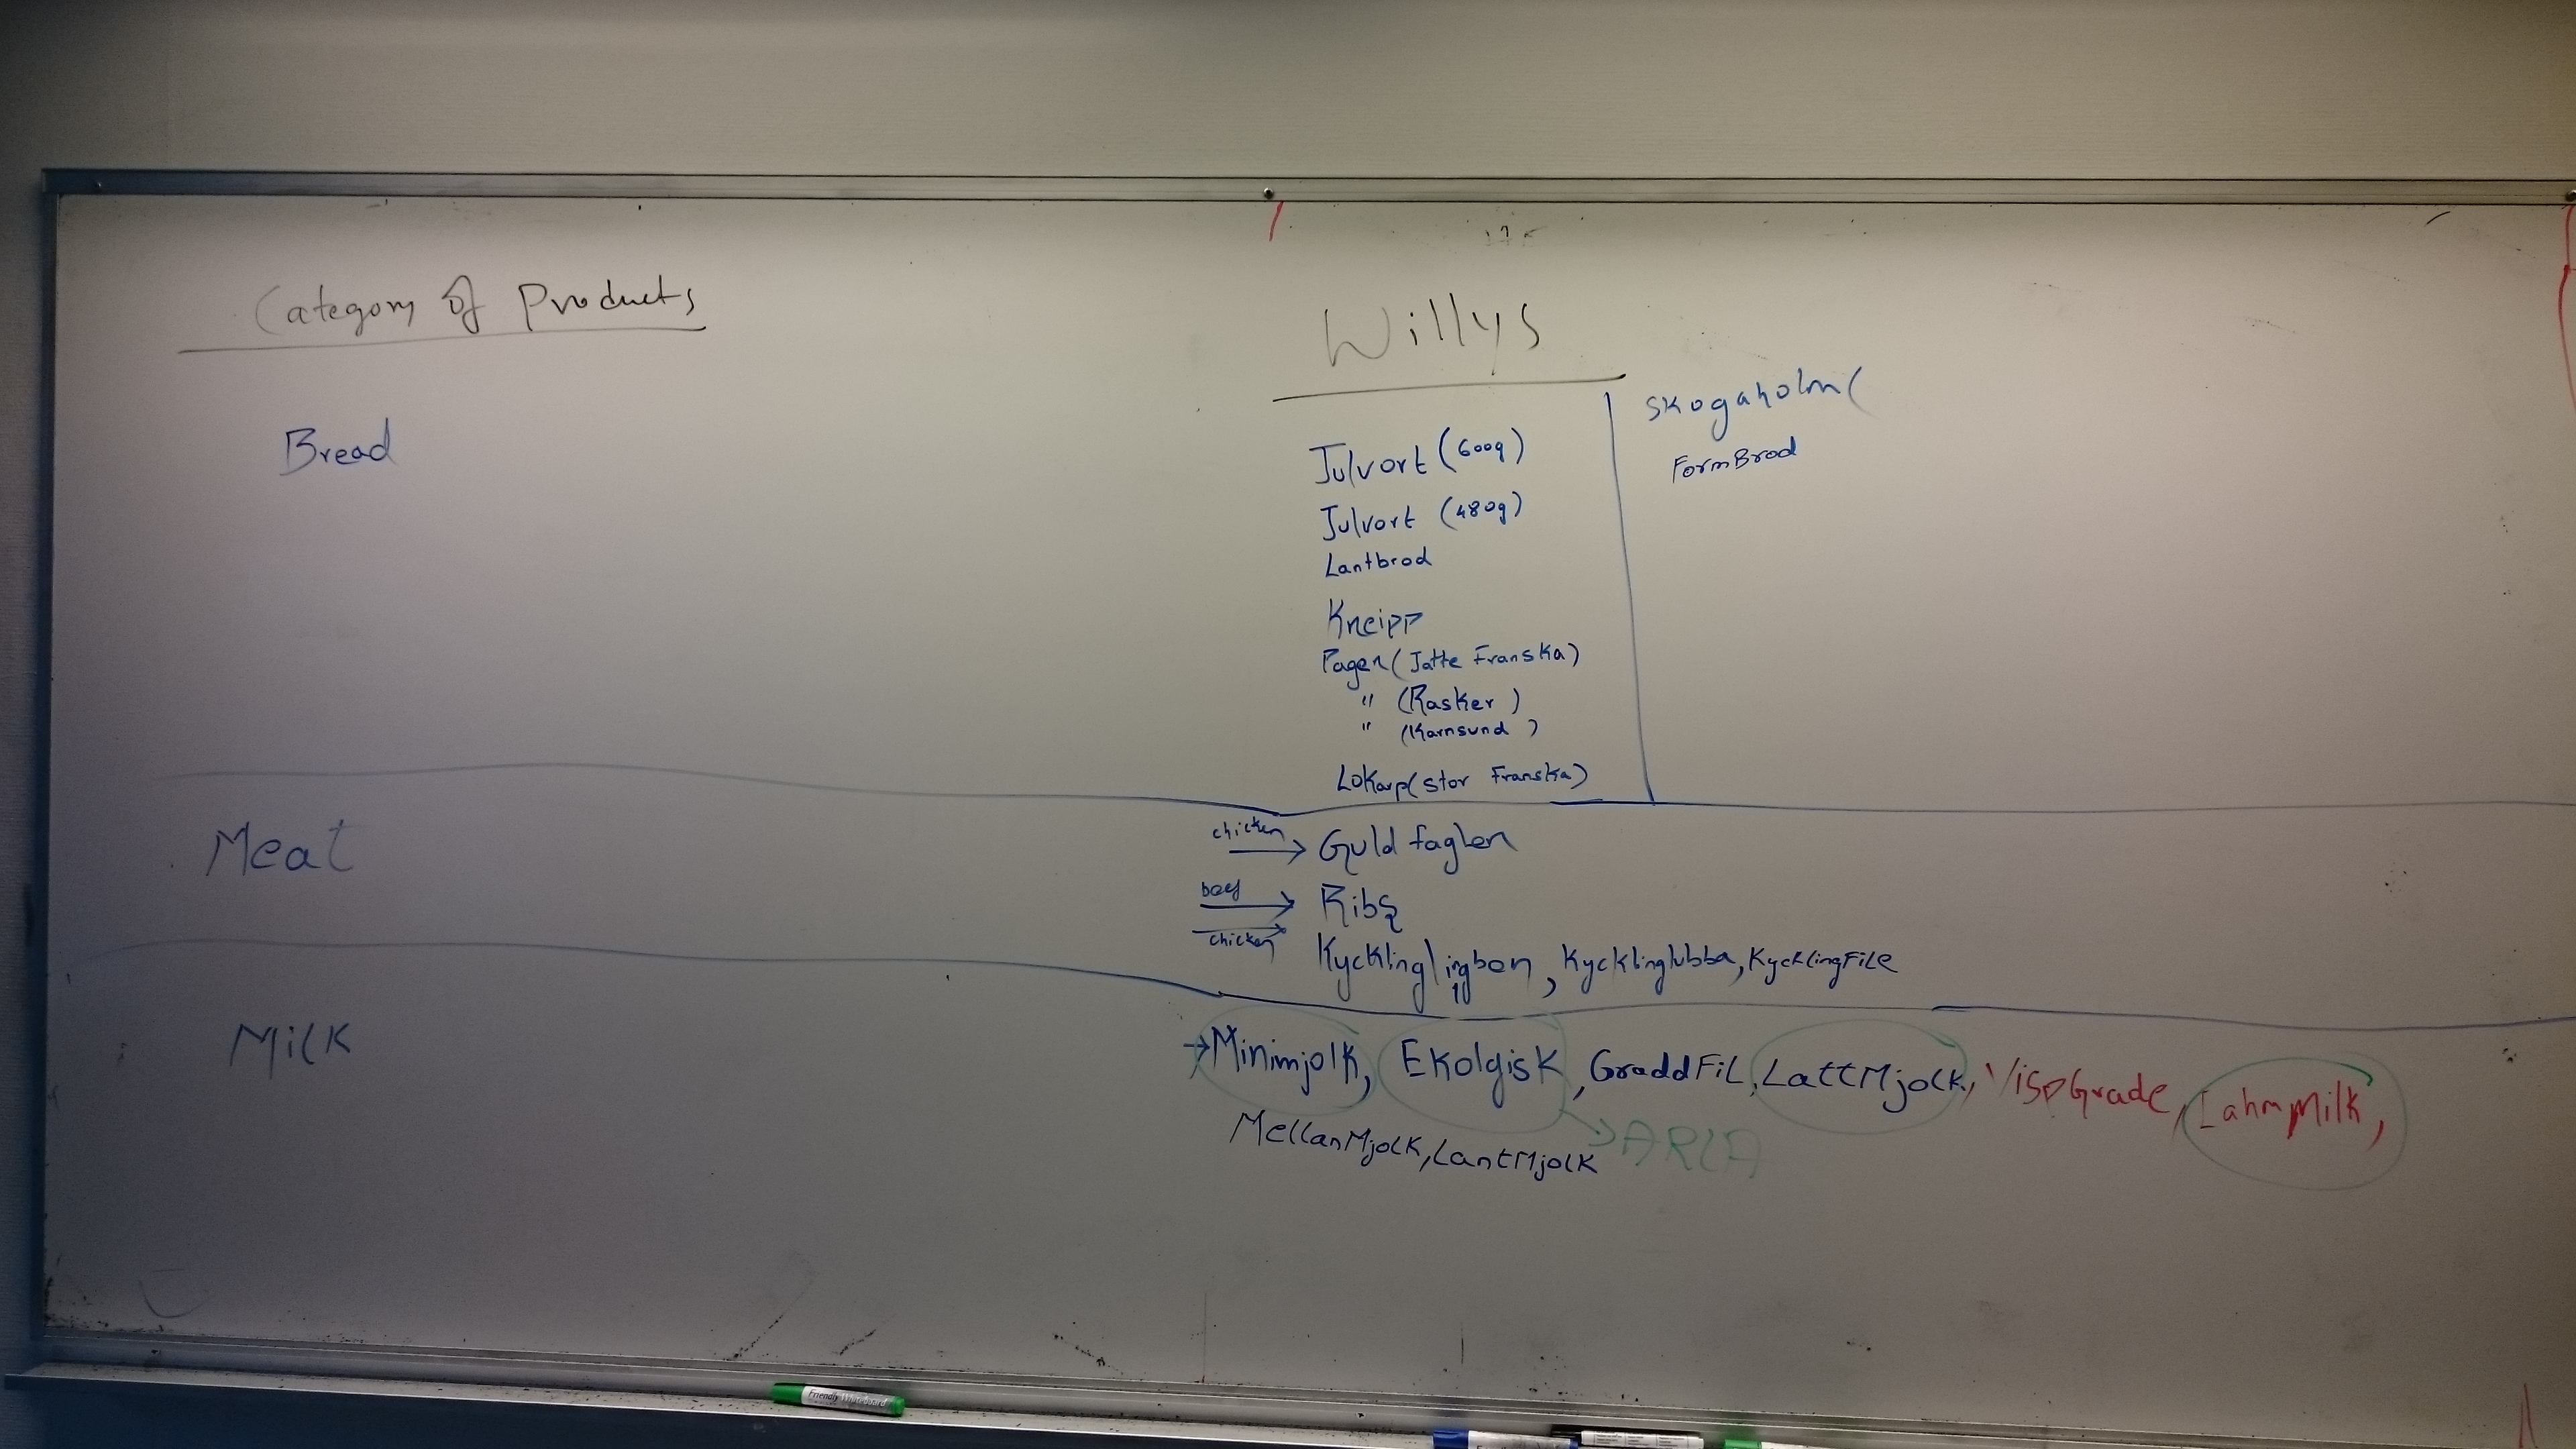 Category of Products
Willys
Bread
Julvort (600g)
Julvort (480g)
Lantbrod
Kneipp
Pagen (Jatte Franska)
" (Rasker )
" (Karnsund )
Lokarp (stor Franska)
Skogaholm (
FormBrod
Meat
chicken
Guld faglen
Ribs
chicken
Kycklinglingben, Kycklinglubba, KycklingFile
Milk
Minimjolk, Ekolgisk, GraddFil, LattMjolk, VispGrade, LahmMilk,
MellanMjolk, LantMjolk
ARLA
Friendly Whiteboard